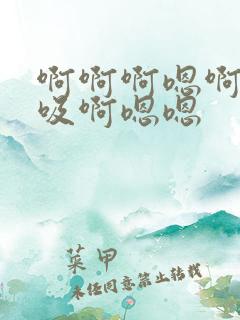 啊啊啊嗯啊
吸啊嗯嗯
菜甲
未经同意禁止转载